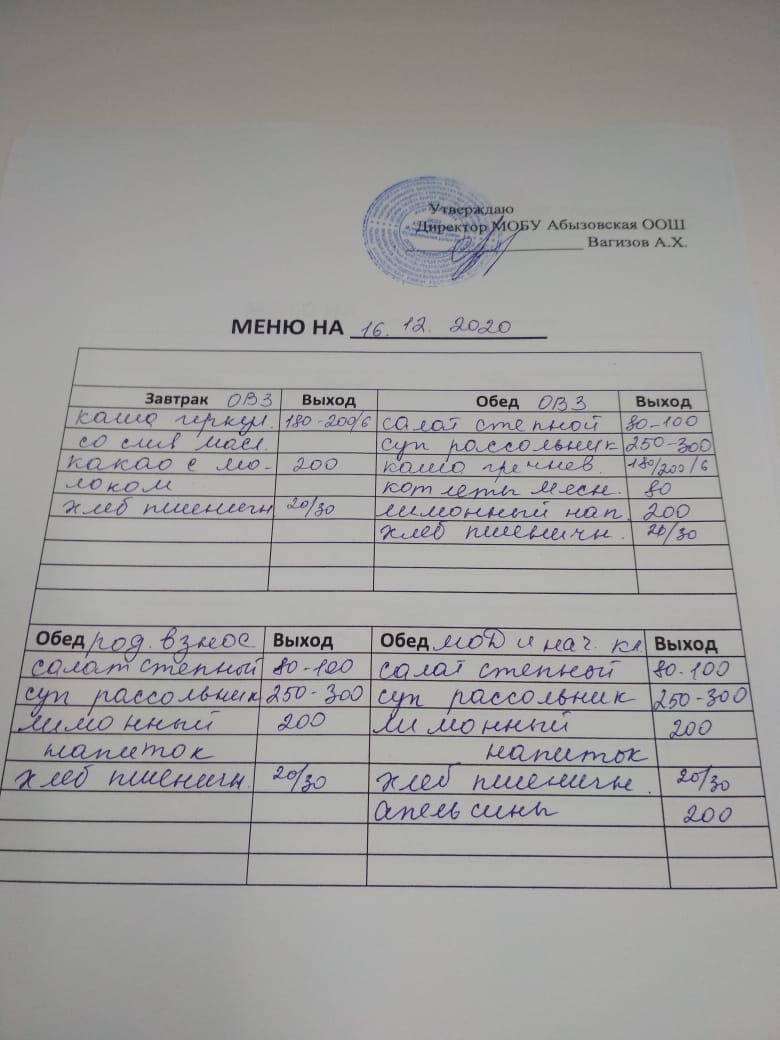 Утверждаю
Директор МОБУ Абызовская ООШ
Вагизов А.Х.
МЕНЮ НА 16. 12. 2020
Завтрак ОВЗ Выход Обед ОВЗ Выход
каша геркул. 180-200/6 салат степной 80-100
со слив масл. суп рассольник 250-300
какао с мо- 200 каша гречнев. 180/200/6
локом котлеты мясн. 80
хлеб пшеничн 20/30 лимонный нап. 200
хлеб пшеничн. 20/30
Обед род. взнос Выход Обед МОД и нач. кл. Выход
салат степный 80-100 салат степный 80-100
суп рассольник 250-300 суп рассольник 250-300
лимонный 200 лимонный 200
напиток напиток
хлеб пшеничн. 20/30 хлеб пшеничн. 20/30
апельсины 200